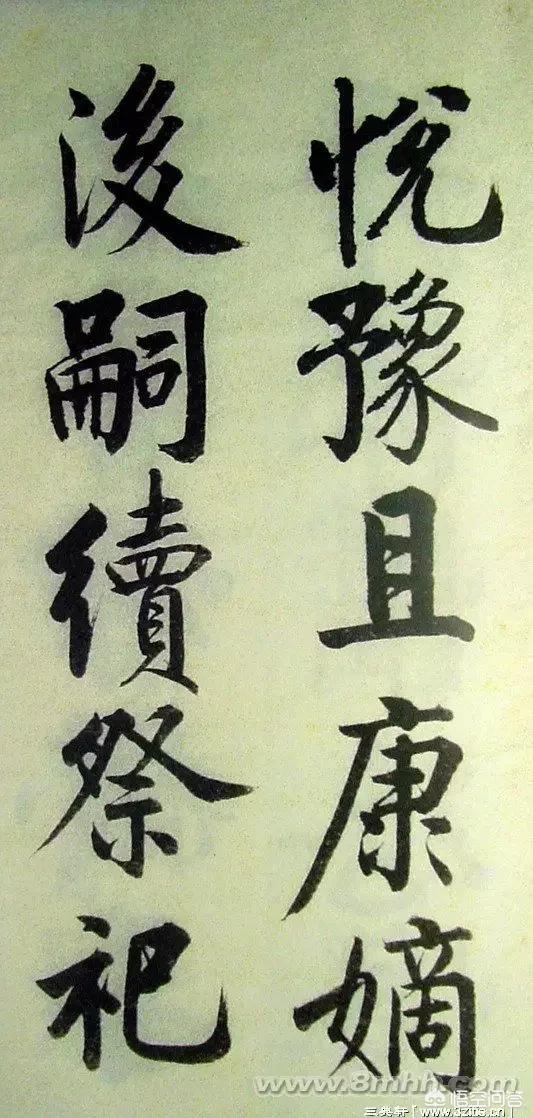 悦豫且康嫡
後嗣續祭祀
www.8mhh.com
悟空问答
三奂轩「www.3zi08.cn」